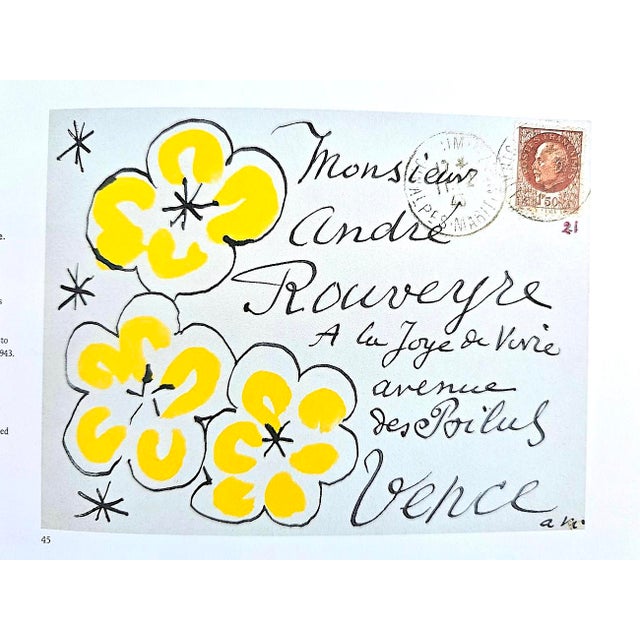 Monsieur
André
Rouveyre
A la Joye de Vivre
avenue
des Poilus
Vence
ALPES-MARIT
1F50
21
to
943.
ed
45